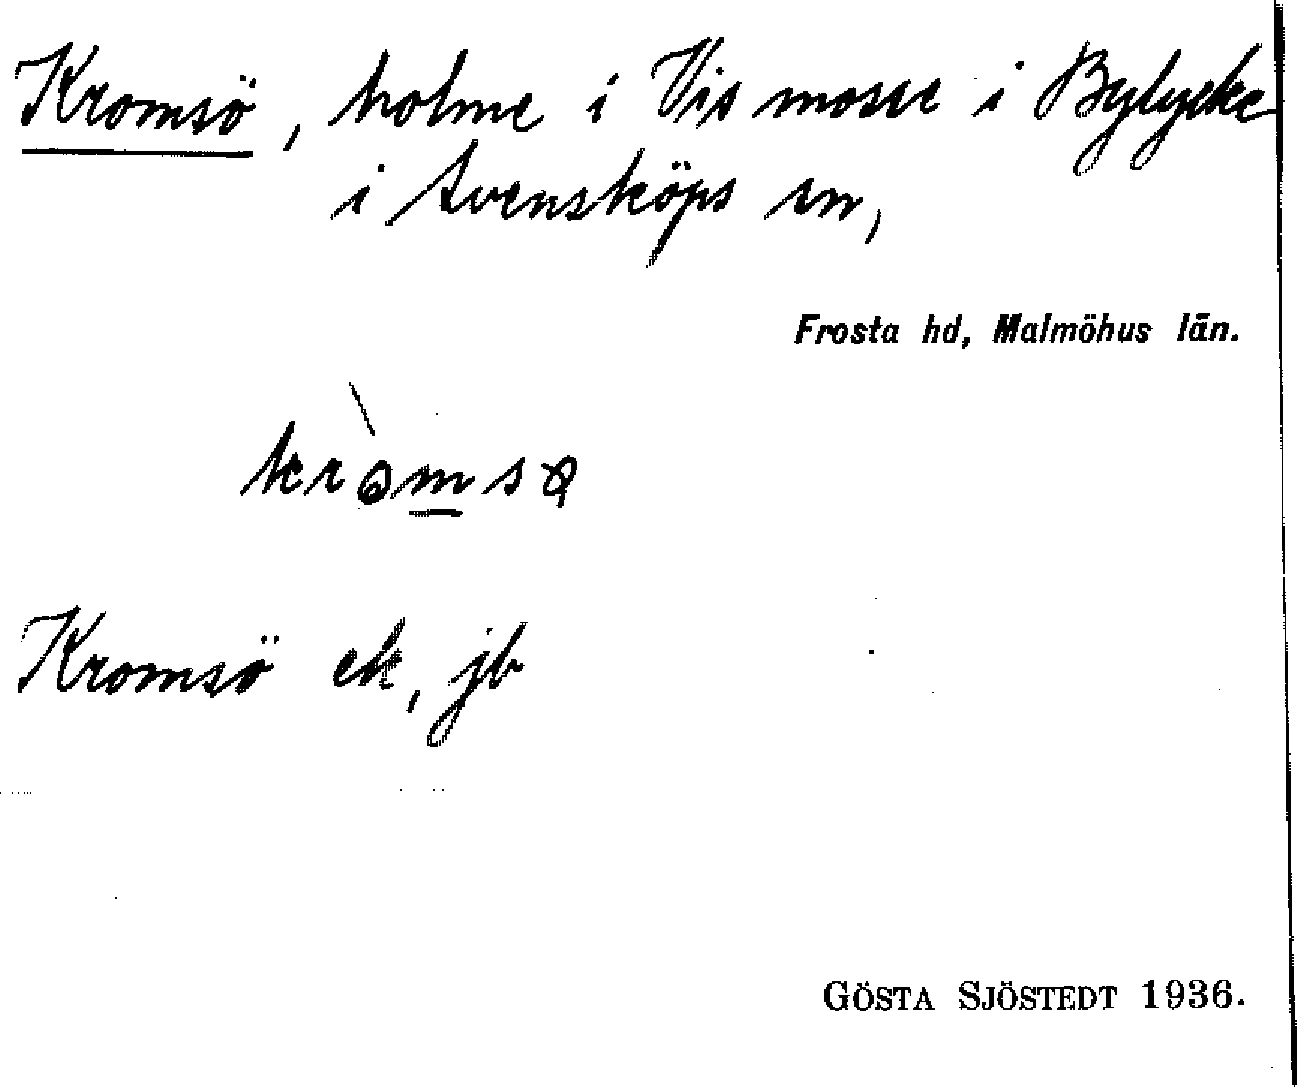 Kromsö, holme i Vis mosse i Bylycke
i Svensköps sn,
Frosta hd, Malmöhus län.
Kromsö ek, jb
GÖSTA SJÖSTEDT 1936.